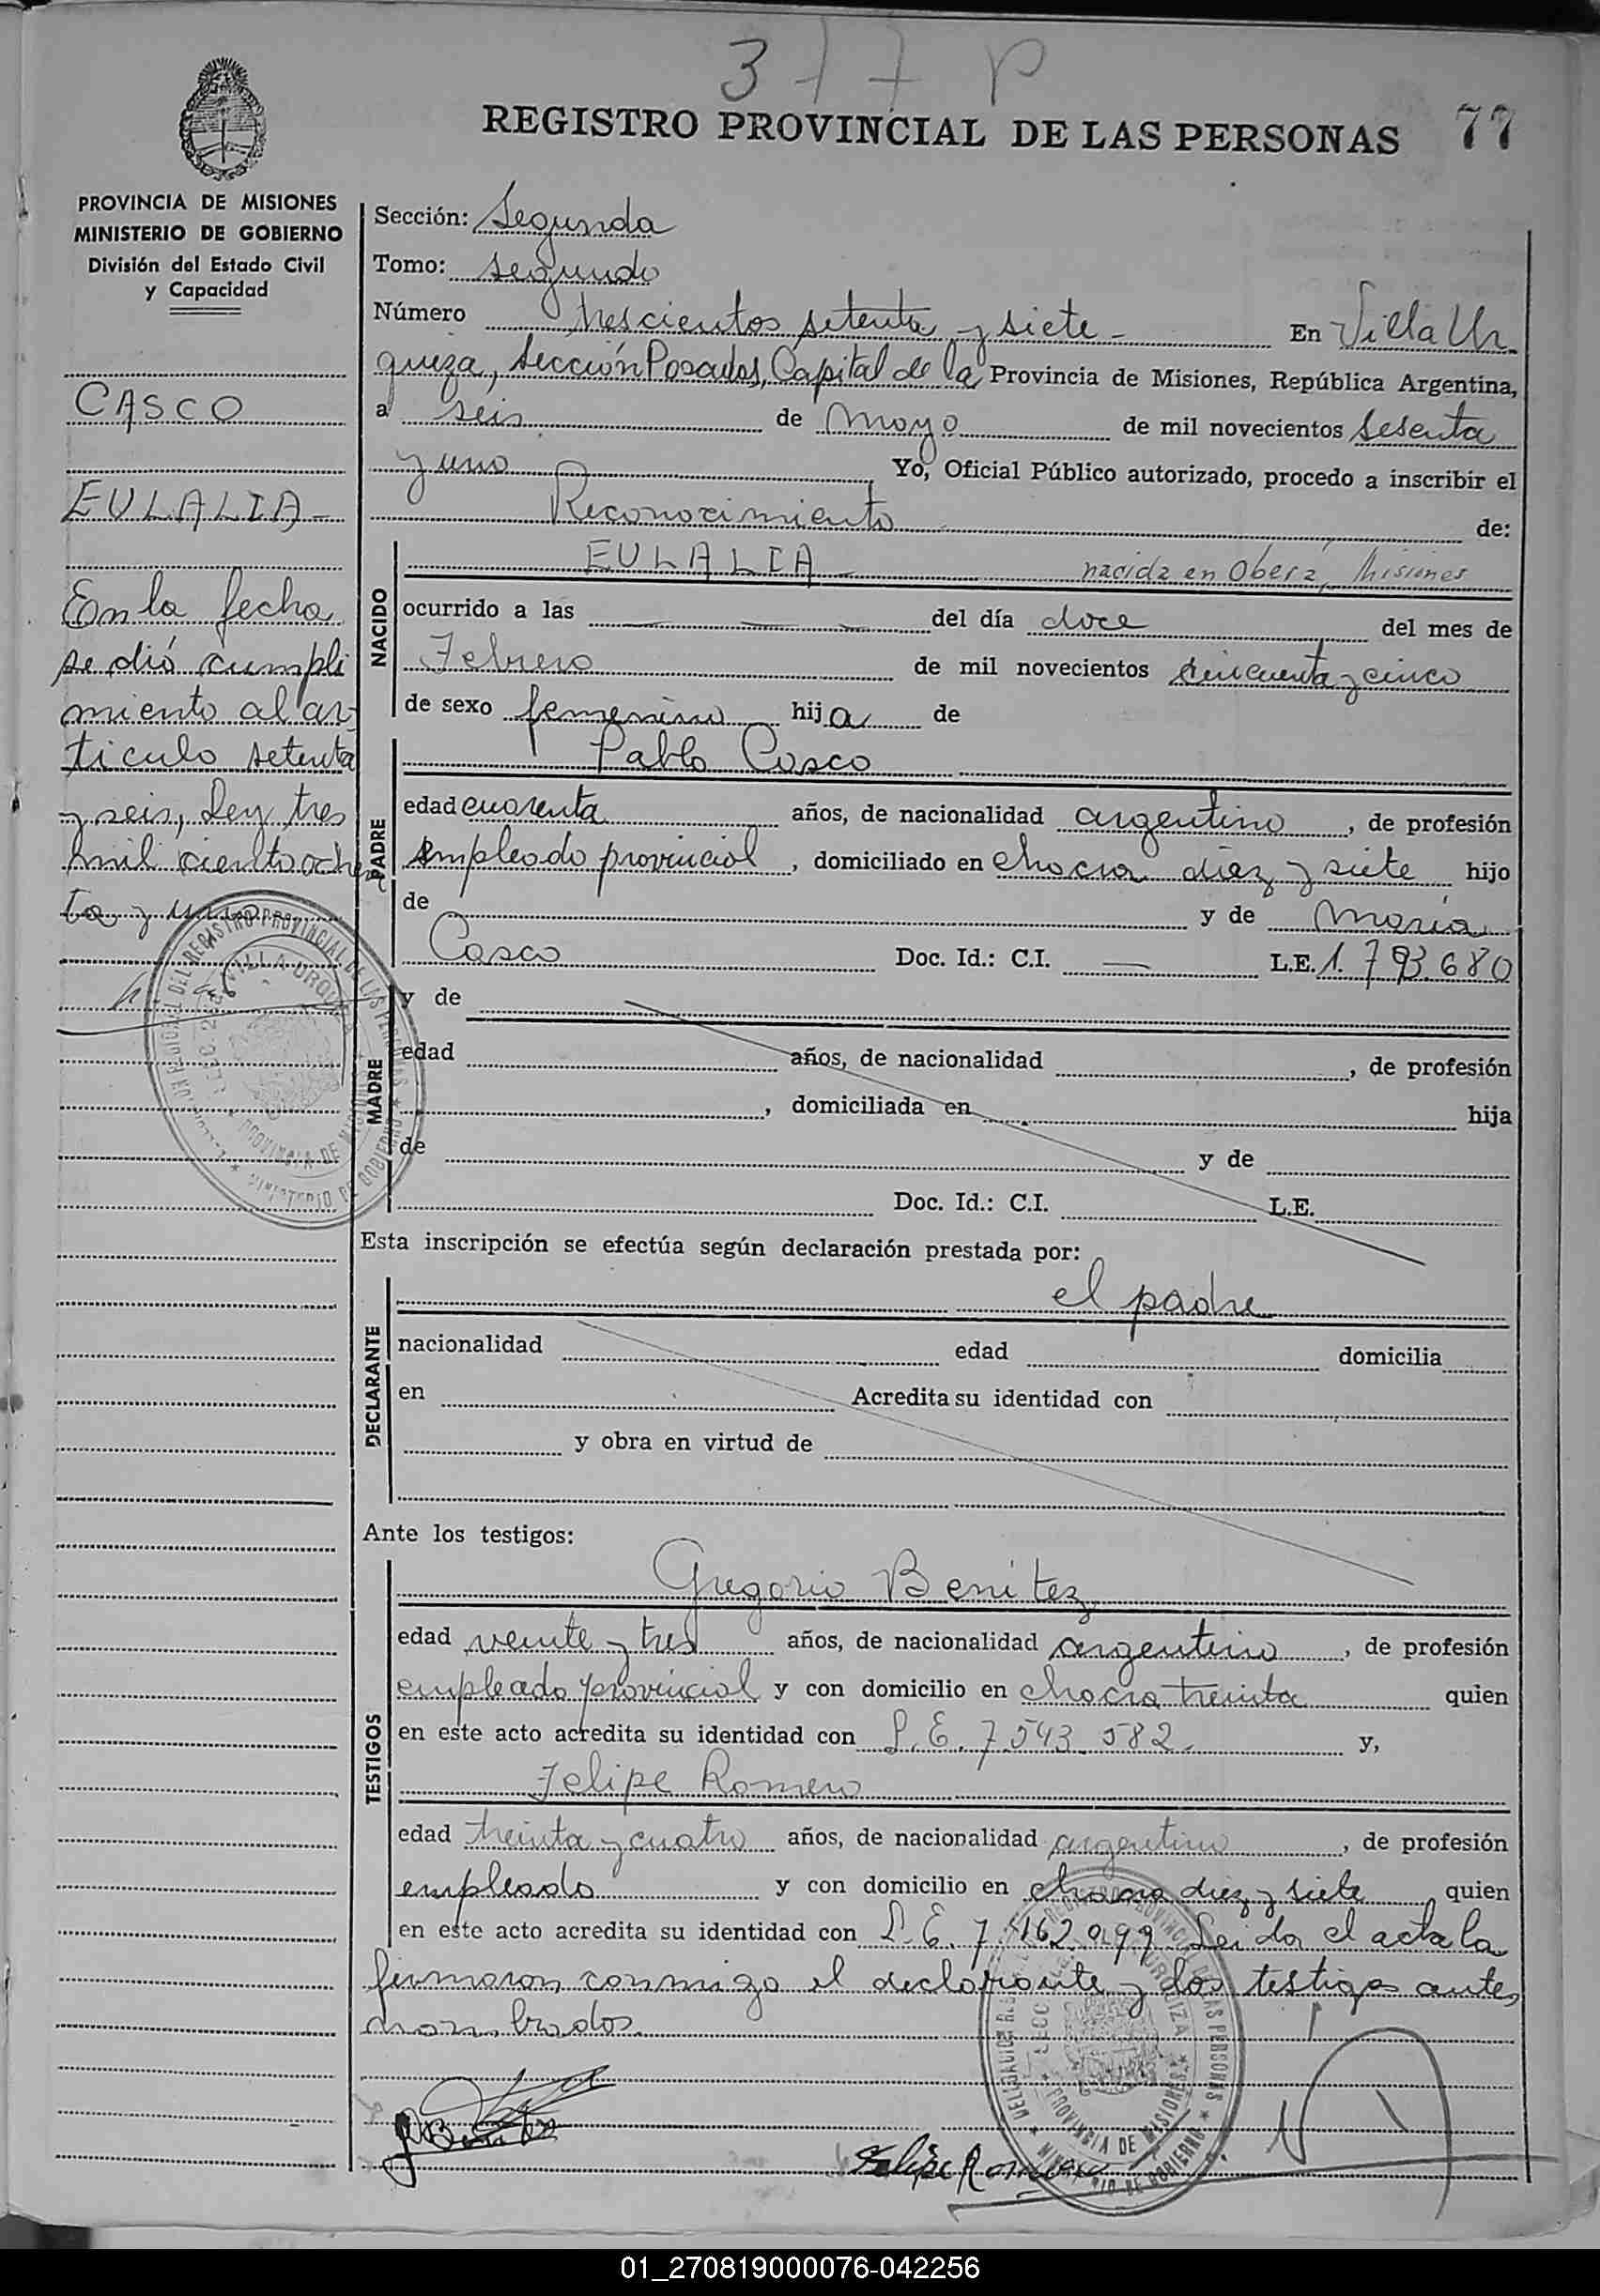 377 P
REGISTRO PROVINCIAL DE LAS PERSONAS 77
PROVINCIA DE MISIONES
MINISTERIO DE GOBIERNO
División del Estado Civil
y Capacidad
CASCO
EULALIA-
En la fecha
se dió cumpli
miento al ar-
tículo setenta
y seis, Ley tres
mil ciento ochen
ta y uno.
Sección: Segunda
Tomo: segundo
Número trescientos setenta y siete - En Villa Ur
quiza, Sección Posadas, Capital de la Provincia de Misiones, República Argentina,
a seis de mayo de mil novecientos sesenta
y uno Yo, Oficial Público autorizado, procedo a inscribir el
Reconocimiento de:
NACIDO
EULALIA - nacida en Oberá, Misiones
ocurrido a las — — — del día doce del mes de
Febrero de mil novecientos cincuenta y cinco
de sexo femenino hija de
PADRE
Pablo Casco
edad cuarenta años, de nacionalidad argentino, de profesión
empleado provincial, domiciliado en chacra diez y siete hijo
de y de María
Casco Doc. Id.: C.I. — L.E. 1.793.680
MADRE
y de
edad años, de nacionalidad , de profesión
, domiciliada en hija
de y de
Doc. Id.: C.I. L.E.
Esta inscripción se efectúa según declaración prestada por:
DECLARANTE
el padre
nacionalidad edad domicilia
en Acredita su identidad con
y obra en virtud de
Ante los testigos:
TESTIGOS
Gregorio Benítez
edad veinte y tres años, de nacionalidad argentino, de profesión
empleado provincial y con domicilio en chacra treinta quien
en este acto acredita su identidad con L.E. 7.543.582. y,
Felipe Romero
edad treinta y cuatro años, de nacionalidad argentino, de profesión
empleado y con domicilio en chacra diez y siete quien
en este acto acredita su identidad con L.E. 7.162.099 Leida el acta la
firmaron conmigo el declarante y los testigos antes
nombrados.
Felipe Romero
01_270819000076-042256